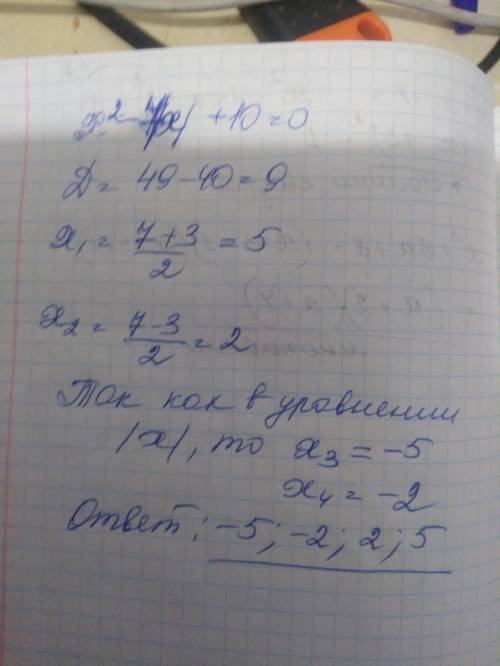 x² - 7|x| + 10 = 0
D = 49 - 40 = 9
x₁ = (7+3)/2 = 5
x₂ = (7-3)/2 = 2
Так как в уравнении
|x|, то x₃ = -5
x₄ = -2
Ответ: -5; -2; 2; 5